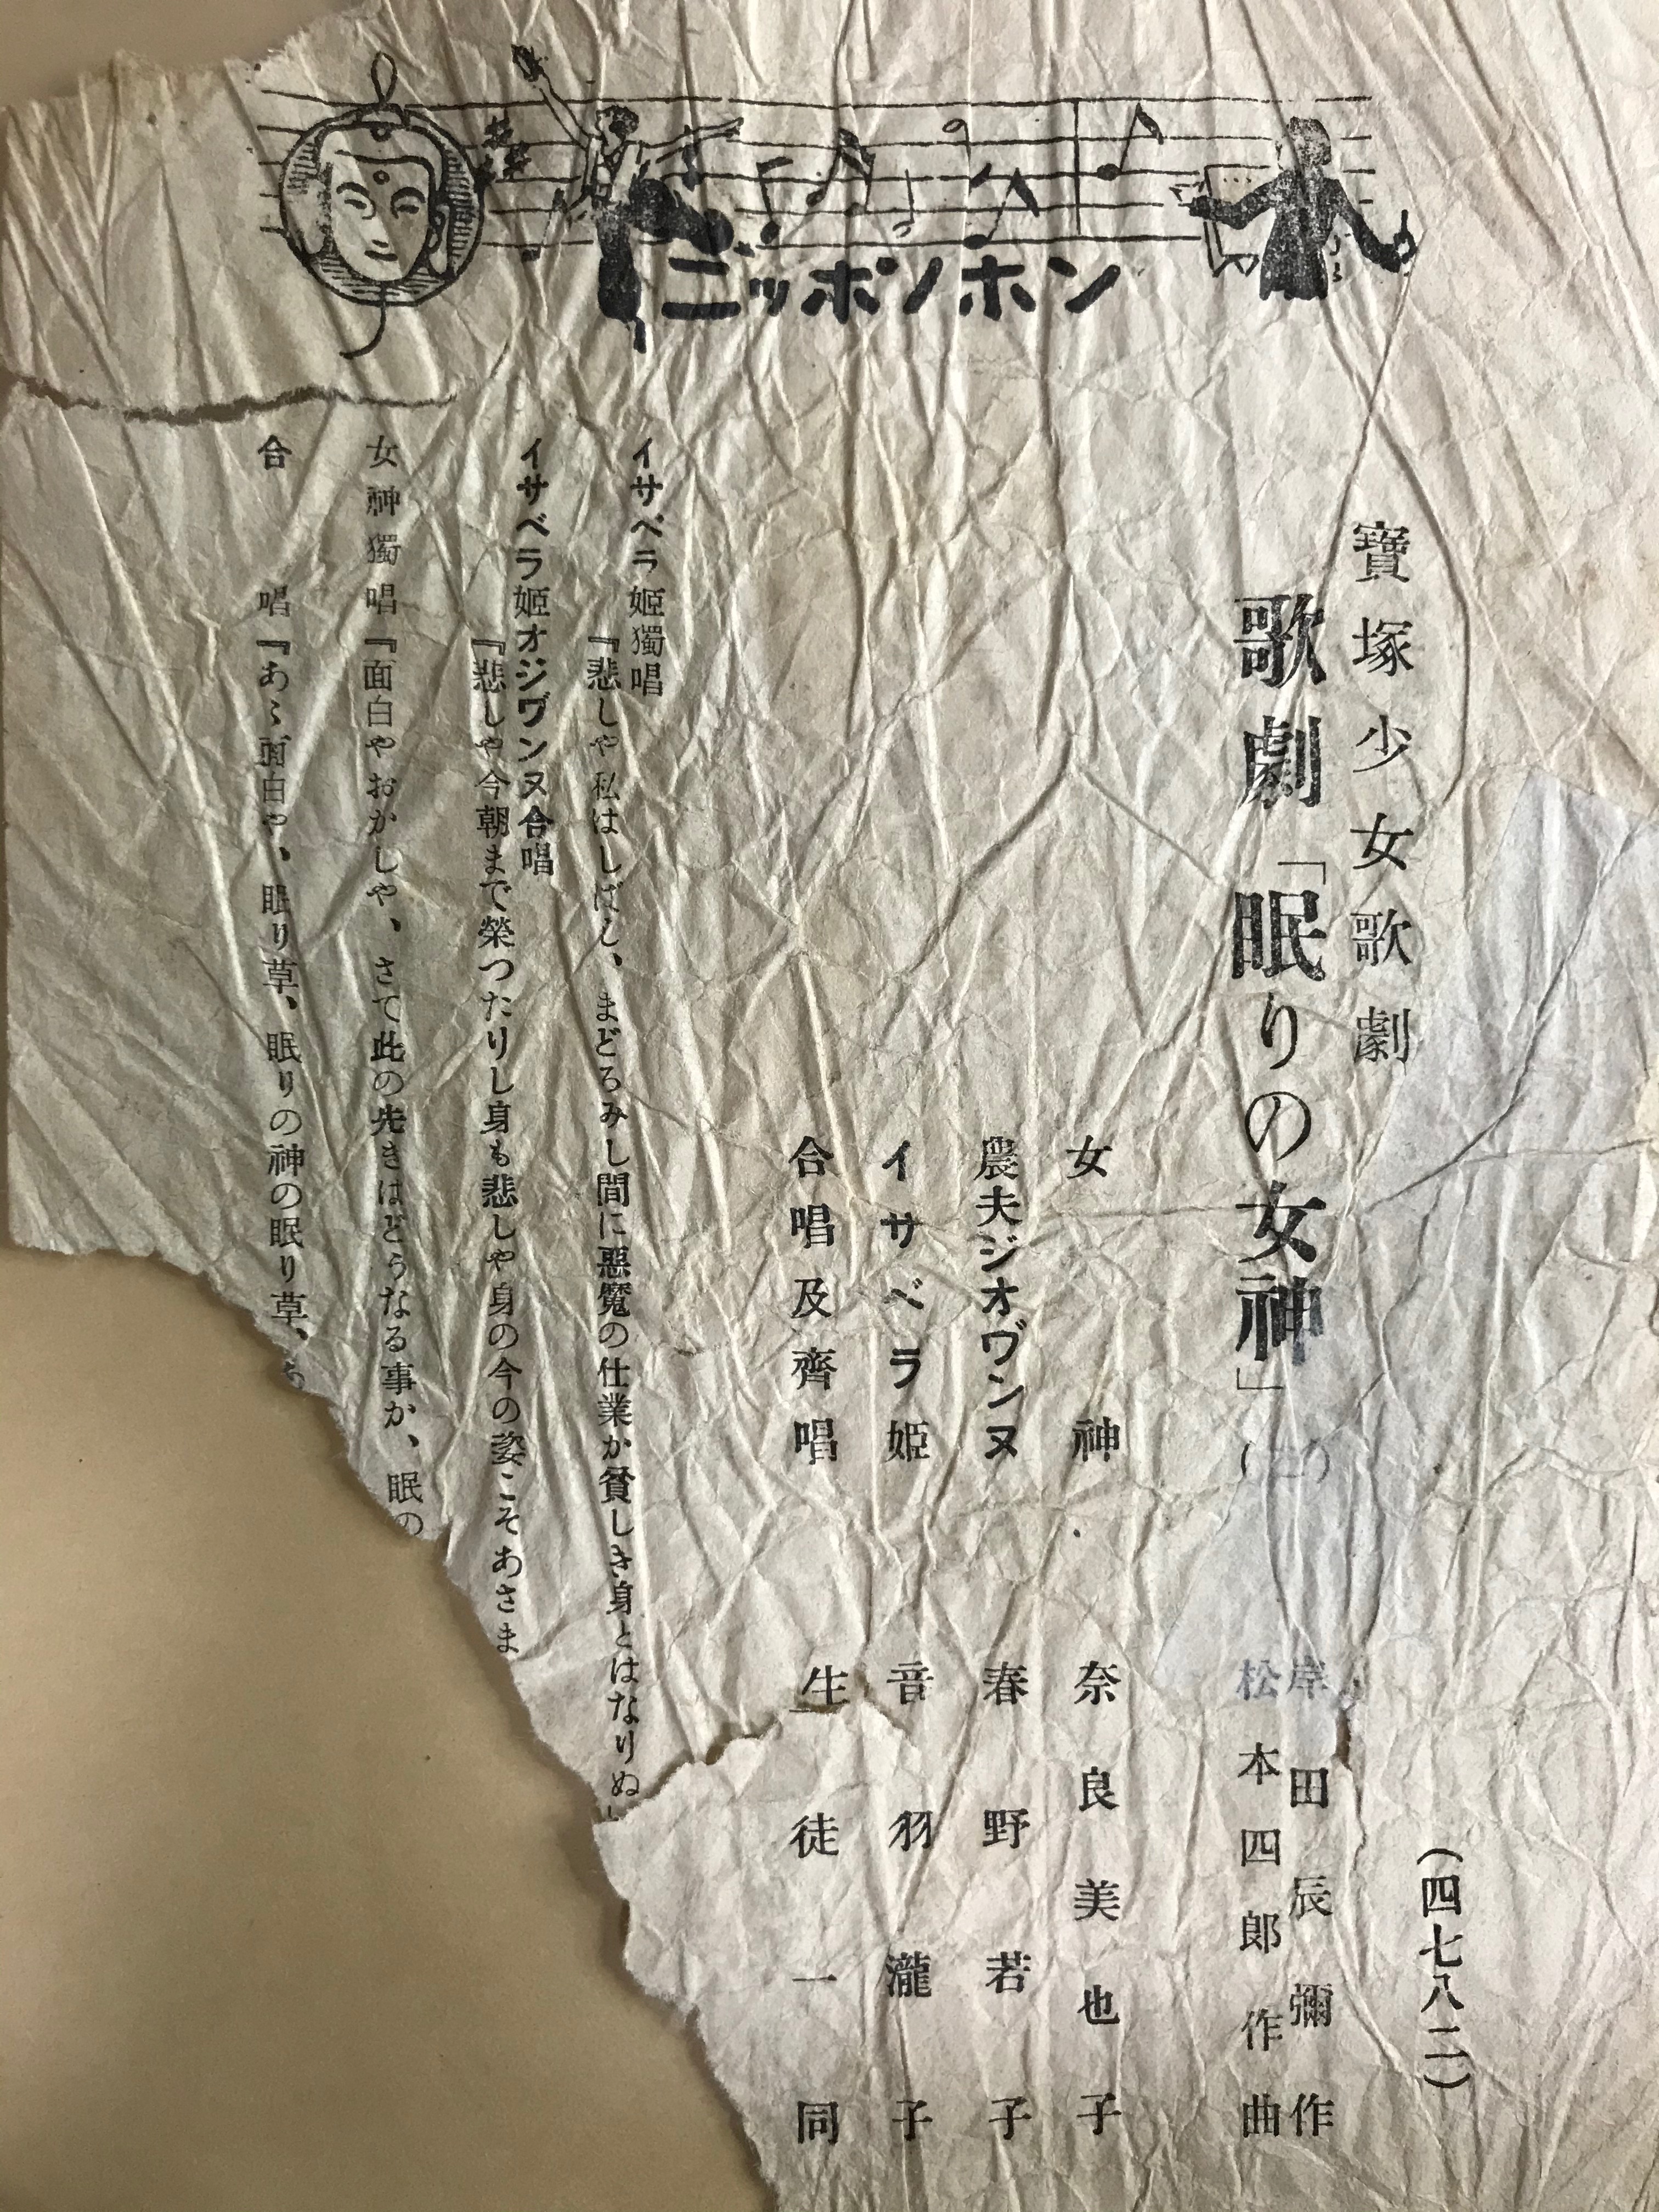 ニッポノホン
(四七八二)
寶塚少女歌劇
歌劇「眠りの女神」(二)
岸田辰彌作
松本四郎作曲
女神 奈良美也子
農夫ジオヴンヌ 春野若子
イサベラ姫 音羽瀧子
合唱及齊唱 生徒一同
イサベラ姫獨唱
『悲しや私はしばし、まどろみし間に惡魔の仕業か貧しき身とはなりぬ
イサベラ姫オジヴンヌ合唱
『悲しや今朝まで榮つたりし身も悲しや身の今の姿こそあさま
女神獨唱『面白やおかしや、さて此の先きはどうなる事か、眠の
合唱『あゝ面白や、眠り草、眠りの神の眠り草、